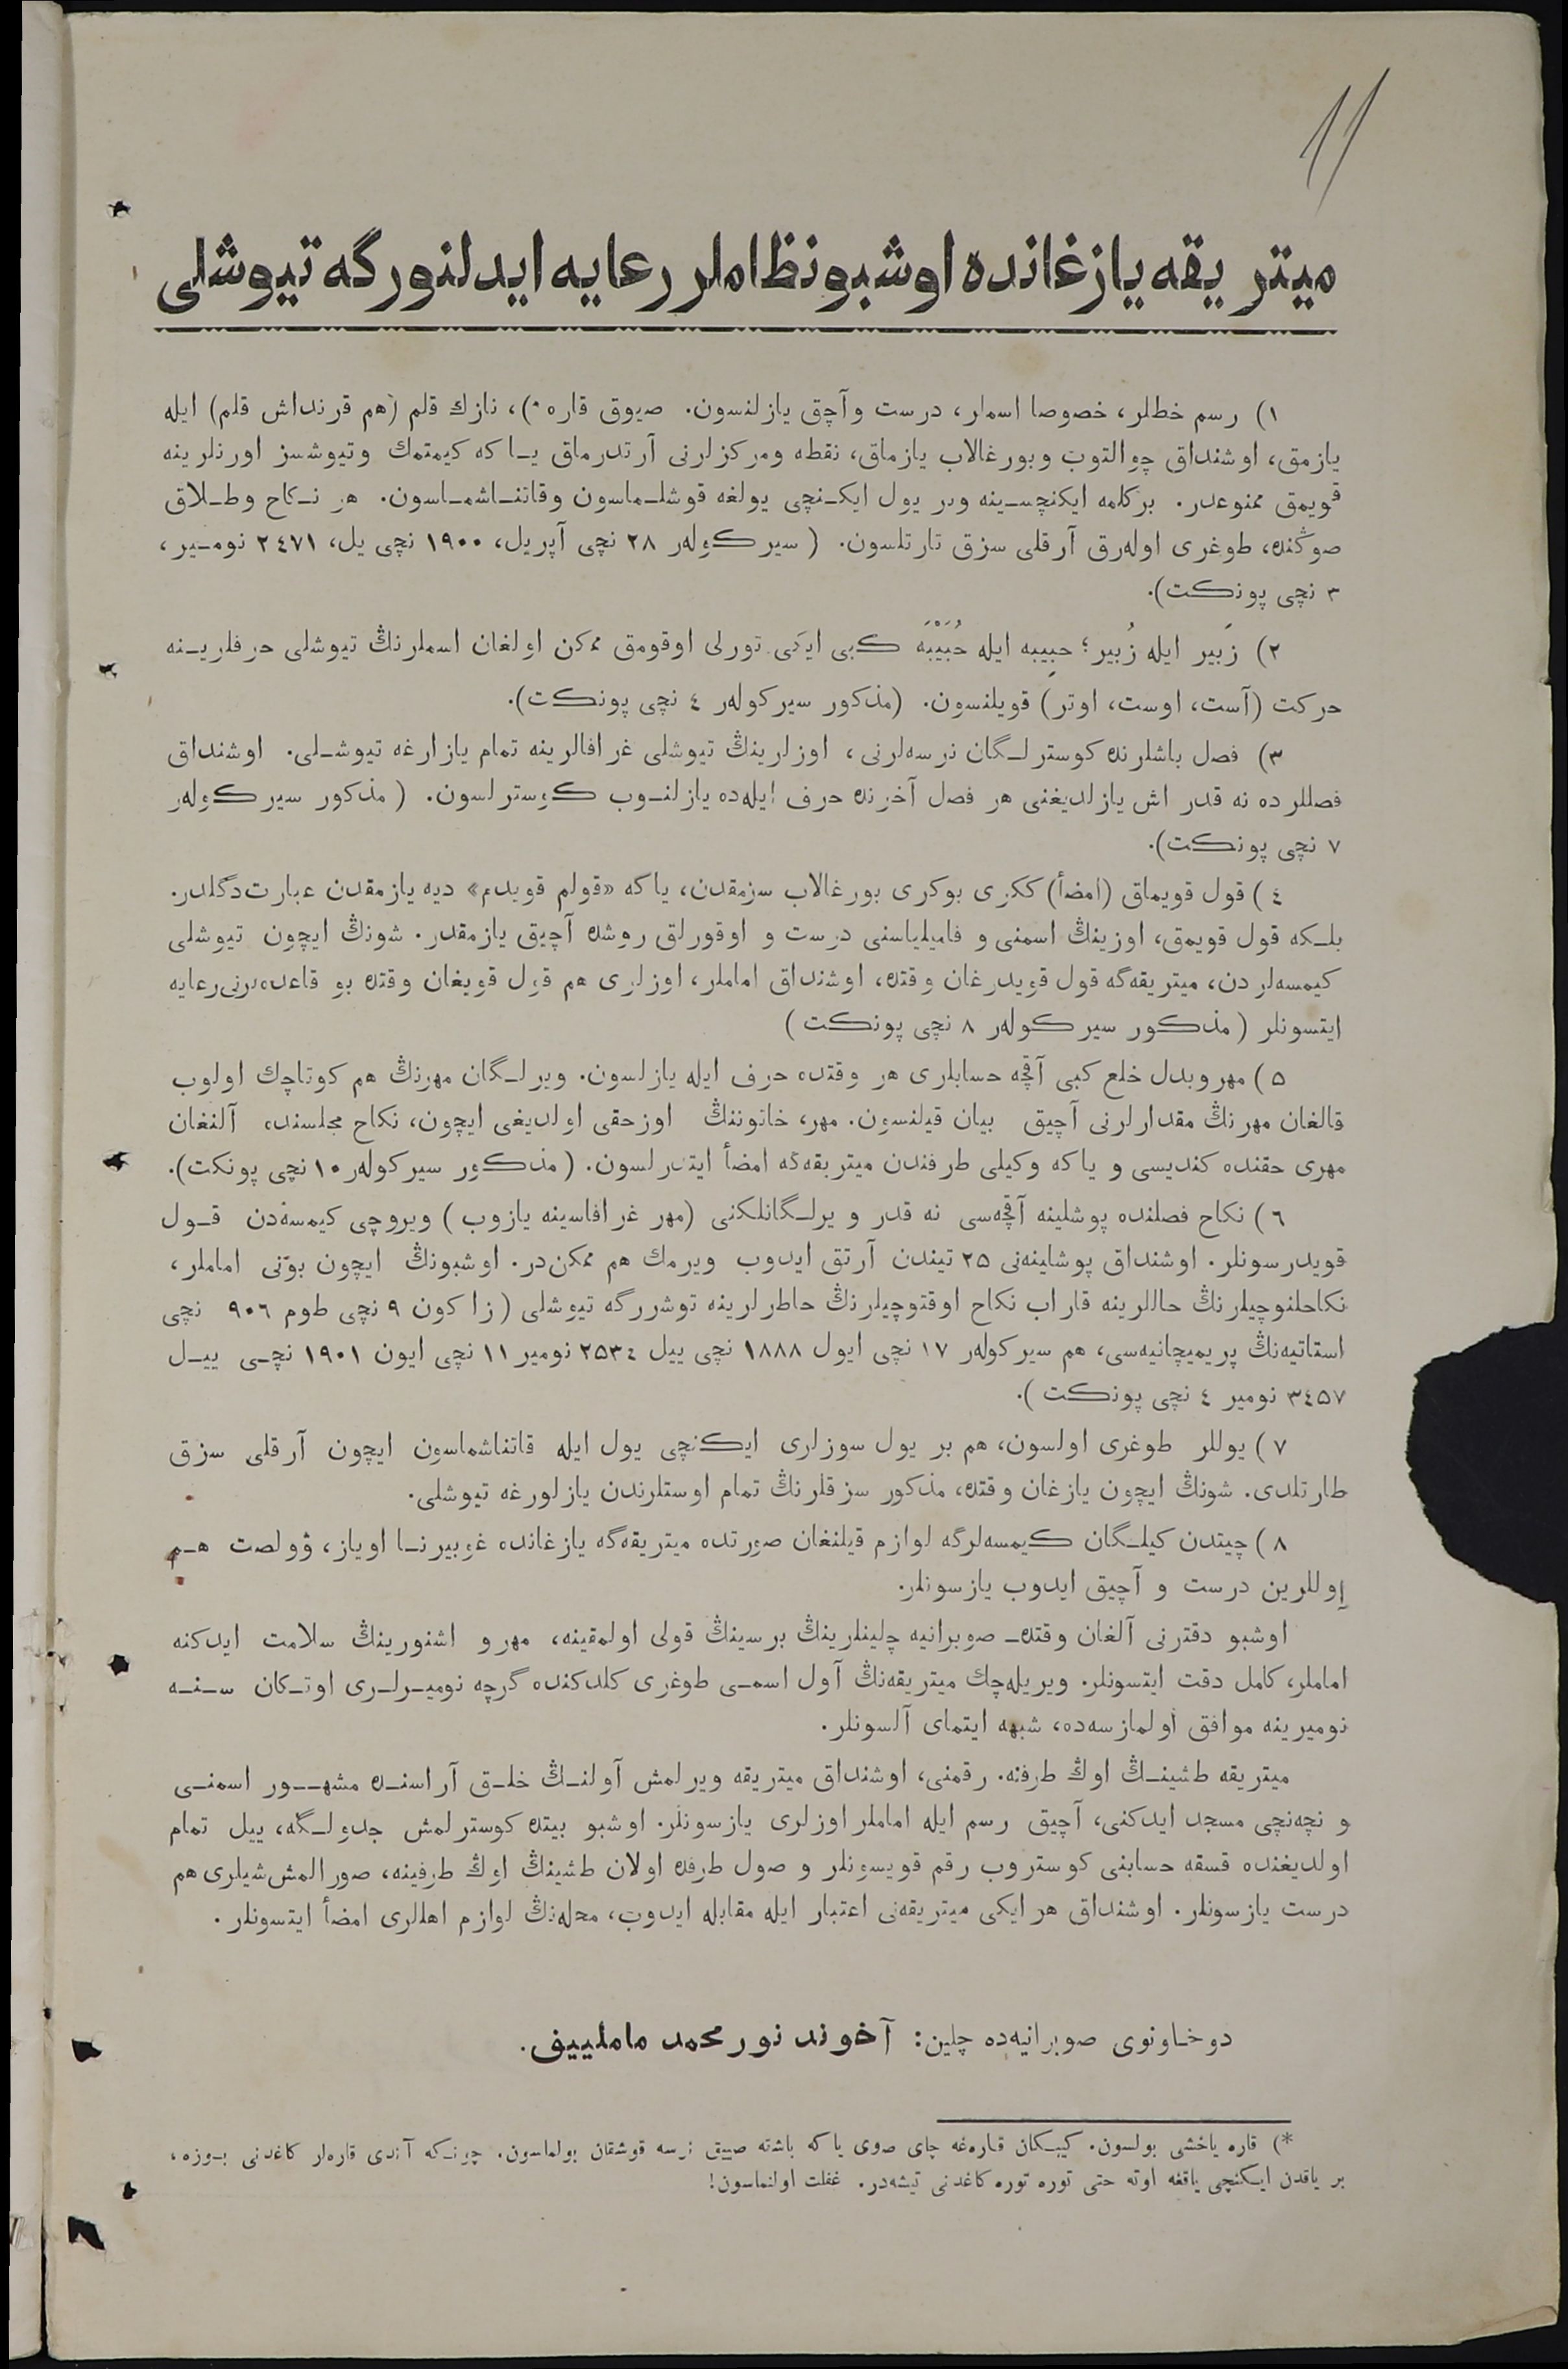 11
ميتريقه يازغانده اوشبو نظاملر رعايه ايدلنورگه تيوشلى
١) رسم خطلر، خصوصا اسملر، درست وآچق يازلنسون. صيوق قاره *)، نازك قلم (هم قرنداش قلم) ايله
يازمق، اوشنداق چوالتوب وبورغالاب يازماق، نقطه ومركزلرنى آرتدرماق ياكه كيمتمك وتيوشسز اورنلرينه
قويمق ممنوعدر. بركلمه ايكنچسينه وبر يول ايكنچى يولغه قوشلماسون وقاتناشماسون. هر نكاح وطلاق
صوڭنده، طوغرى اوله‌رق آرقلى سزق تارتلسون. (سيركوله‌ر ٢٨ نچى آپريل، ١٩٠٠ نچى يل، ٢٤٧١ نومير،
٣ نچى پونكت).
٢) زَبير ايله زُبير؛ حبِيبه ايله حُبَيْبَه كبى ايكى تورلى اوقومق ممكن اولغان اسملرنڭ تيوشلى حرفلرينه
حركت (آست، اوست، اوتر) قويلنسون. (مذكور سيركوله‌ر ٤ نچى پونكت).
٣) فصل باشلرنده كوسترلگان نرسه‌لرنى، اوزلرينڭ تيوشلى غرافالرينه تمام يازارغه تيوشلى. اوشنداق
فصللرده نه قدر اش يازلديغنى هر فصل آخرنده حرف ايله‌ده يازلنوب كوسترلسون. (مذكور سيركوله‌ر
٧ نچى پونكت).
٤) قول قويماق (امضأ) ككرى بوكرى بورغالاب سزمقدن، ياكه «قولم قويدم» ديه يازمقدن عبارت دگلدر.
بلكه قول قويمق، اوزينڭ اسمنى و فاميلياسنى درست و اوقورلق روشده آچيق يازمقدر. شونڭ ايچون تيوشلى
كيمسه‌لردن، ميتريقه‌گه قول قويدرغان وقتده، اوشنداق اماملر، اوزلرى هم قول قويغان وقتده بو قاعده‌لرنى رعايه
ايتسونلر (مذكور سيركوله‌ر ٨ نچى پونكت)
٥) مهر وبدل خلع كبى آقچه حسابلرى هر وقتده حرف ايله يازلسون. ويرلگان مهرنڭ هم كوتاچك اولوب
قالغان مهرنڭ مقدارلرنى آچيق بيان قيلنسون. مهر، خاتوننڭ اوز حقى اولديغى ايچون، نكاح مجلسنده آلنغان
مهرى حقنده كنديسى و ياكه وكيلى طرفندن ميتريقه‌گه امضأ ايتدرلسون. (مذكور سيركوله‌ر ١٠ نچى پونكت).
٦) نكاح فصلنده پوشلينه آقچه‌سى نه قدر ويرلگانلكنى (مهر غرافاسينه يازوب) ويروچى كيمسه‌دن قول
قويدرسونلر. اوشنداق پوشلينه‌نى ٢٥ تيندن آرتق ايدوب ويرمك هم ممكن‌در. اوشبونڭ ايچون بونى اماملر،
نكاحلنوچيلرنڭ حاللرينه قاراب نكاح اوقتوچيلرنڭ خاطرلرينه توشررگه تيوشلى (زاكون ٩ نچى طوم ٩٠٦ نچى
استاتيه‌نڭ پريميچانيه‌سى، هم سيركوله‌ر ١٧ نچى ايول ١٨٨٨ نچى ييل ٢٥٣٤ نومير ١١ نچى ايون ١٩٠١ نچى ييل
٣٤٥٧ نومير ٤ نچى پونكت).
٧) يوللر طوغرى اولسون، هم بر يول سوزلرى ايكنچى يول ايله قاتناشماسون ايچون آرقلى سزق
طارتلدى. شونڭ ايچون يازغان وقتده، مذكور سزقلرنڭ تمام اوستلرندن يازلورغه تيوشلى.
٨) چيتدن كيلگان كيمسه‌لرگه لوازم قيلنغان صورتده ميتريقه‌گه يازغانده غوبيرنا اوياز، ۋولصت هم
اوللرين درست و آچيق ايدوب يازسونلر.
اوشبو دفترنى آلغان وقتده صوبرانيه چلينلرينڭ برسينڭ قولى اولمقينه، مهر و اشنورينڭ سلامت ايدكنه
اماملر، كامل دقت ايتسونلر. ويريله‌چك ميتريقه‌نڭ آول اسمى طوغرى كلدكنده گرچه نوميرلرى اوتكان سنه
نوميرينه موافق اولمازسه‌ده، شبهه ايتماى آلسونلر.
ميتريقه طشينڭ اوڭ طرفنه. رقمنى، اوشنداق ميتريقه ويرلمش آولنڭ خلق آراسنده مشهور اسمنى
و نچه‌نچى مسجد ايدكنى، آچيق رسم ايله اماملر اوزلرى يازسونلر. اوشبو بيتده كوسترلمش جدولگه، ييل تمام
اولديغنده قسقه حسابنى كوستروب رقم قويسونلر و صول طرفده اولان طشينڭ اوڭ طرفينه، صورالمش شيلرى هم
درست يازسونلر. اوشنداق هر ايكى ميتريقه‌نى اعتبار ايله مقابله ايدوب، محله‌نڭ لوازم اهللرى امضأ ايتسونلر.
دوخاونوى صوبرانيه‌ده چلين: آخوند نورمحمد ماملييف.
*) قاره ياخشى بولسون. كيبكان قاره‌غه چاى صوى ياكه باشته صييق نرسه قوشقان بولماسون. چونكه آندى قاره‌لر كاغدنى بوزه،
بر ياقدن ايكنچى ياقغه اوته حتى توره توره كاغدنى تيشه‌در. غفلت اولنماسون!